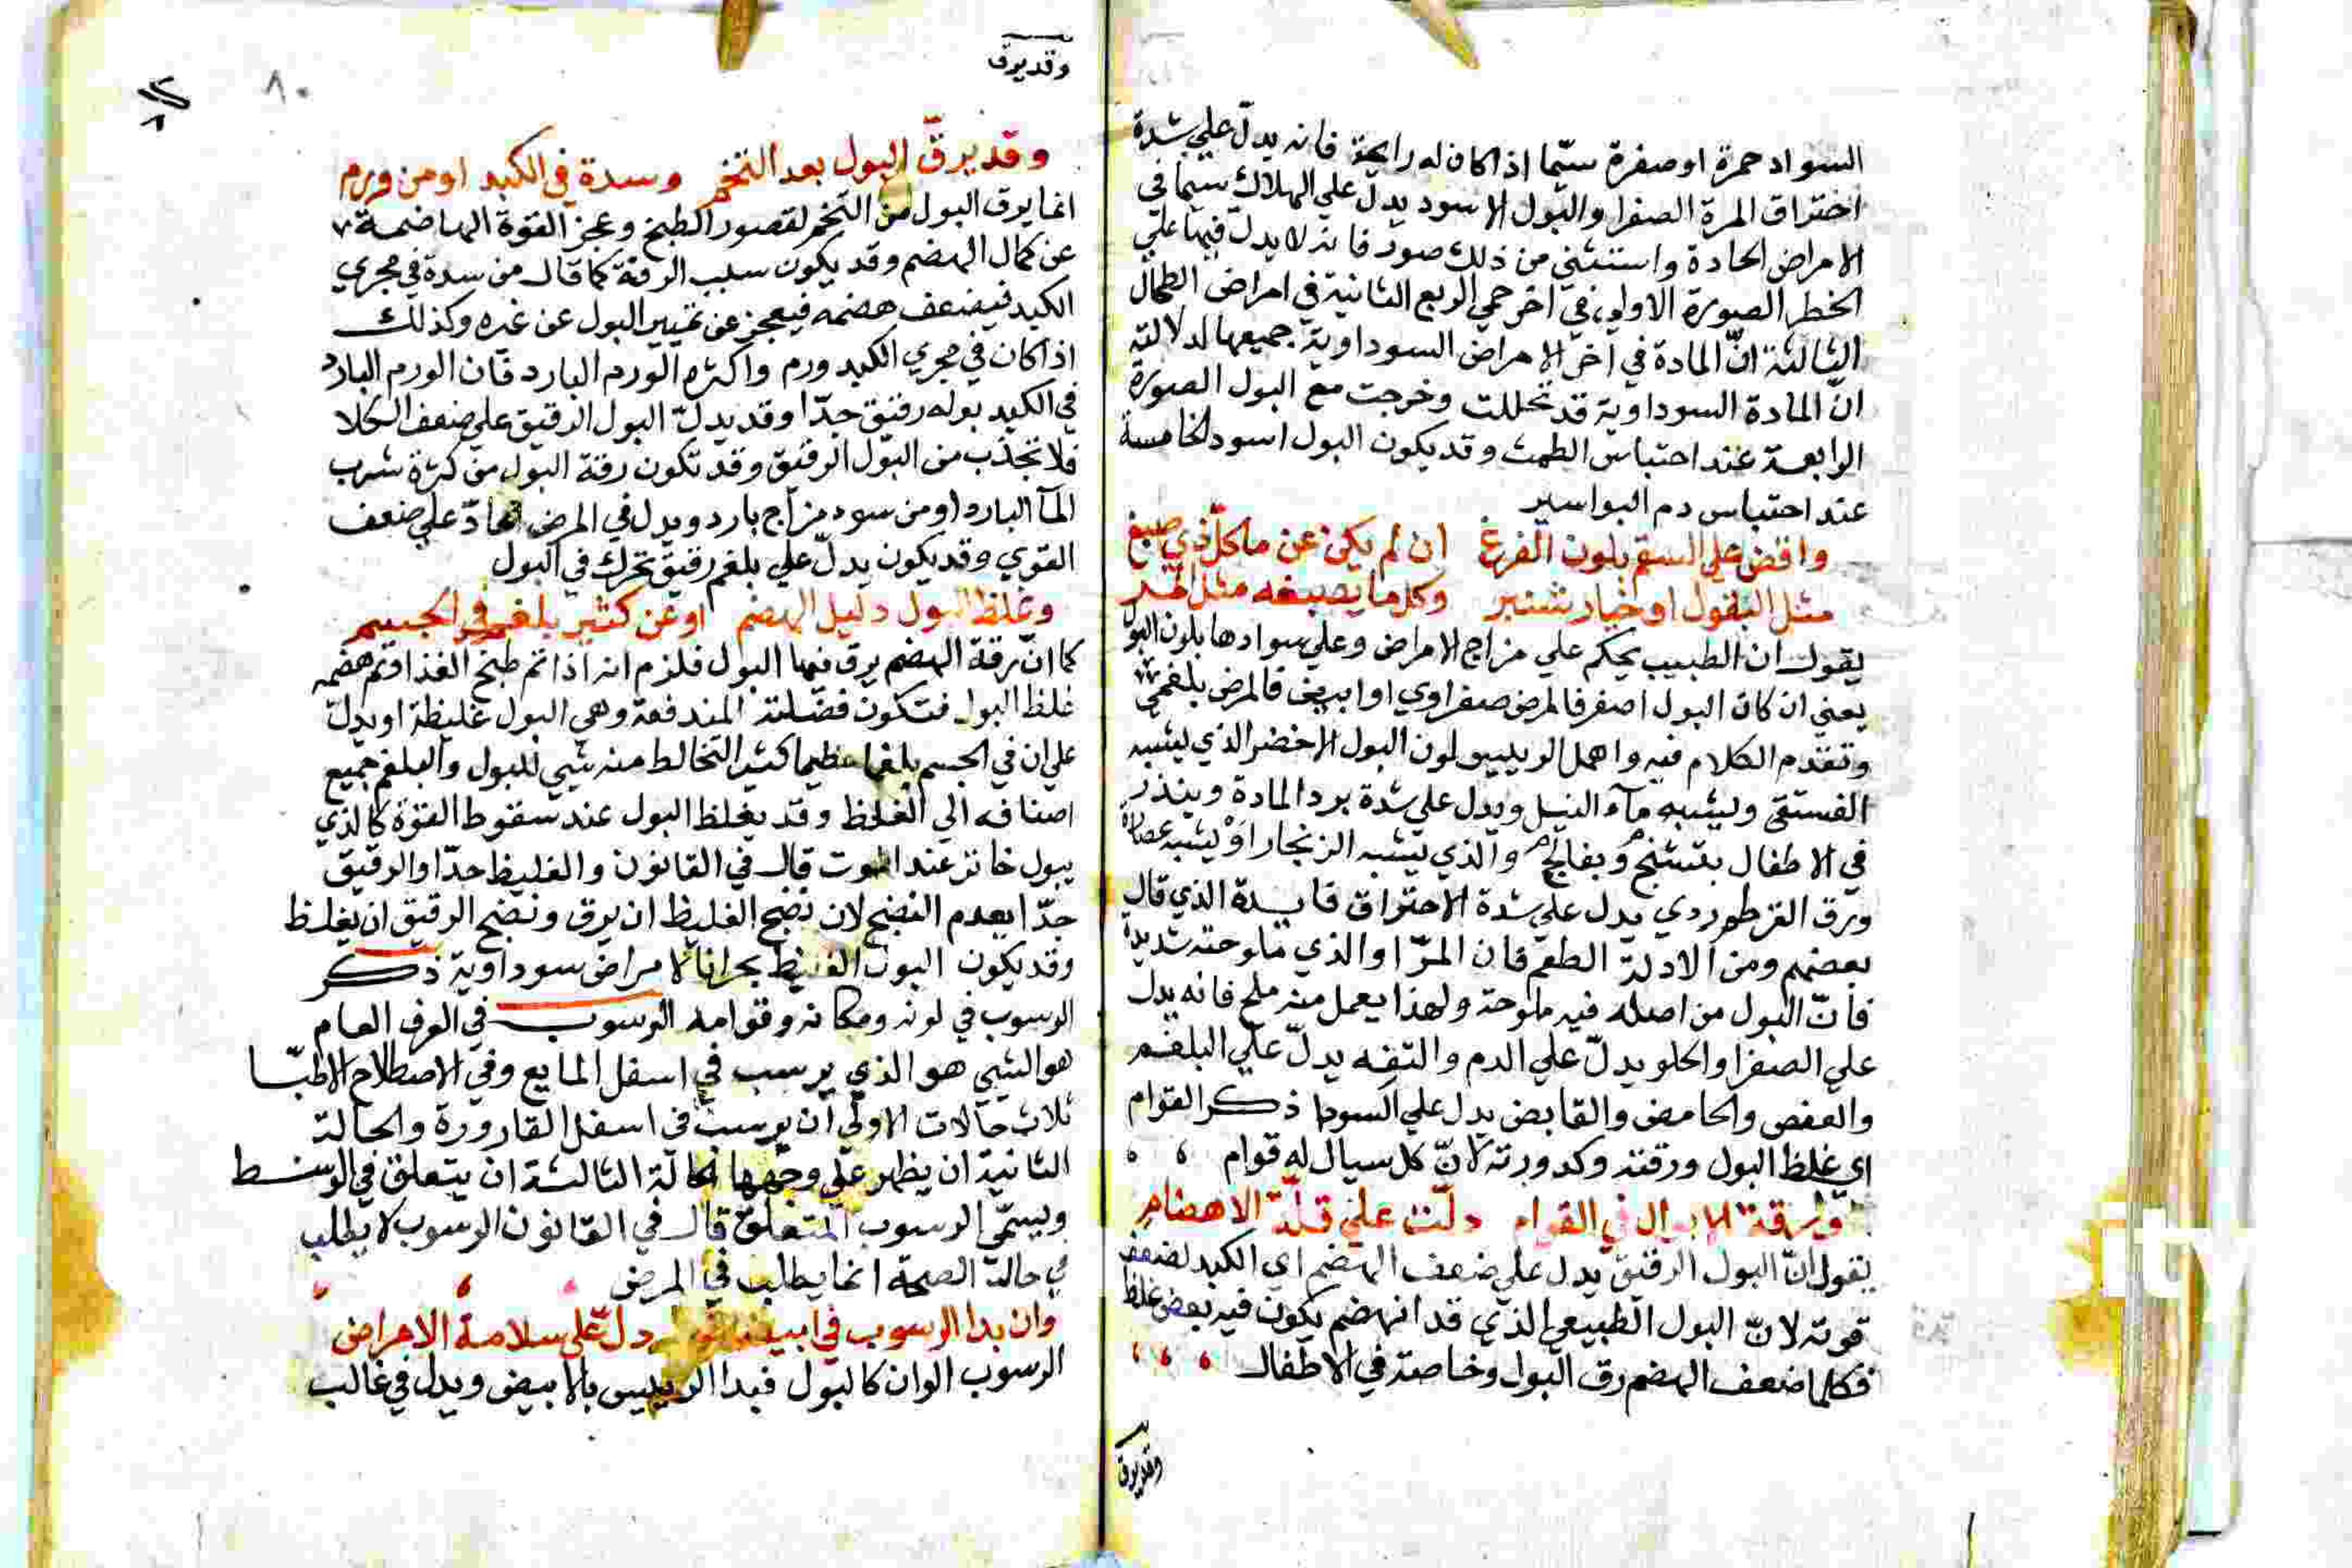 السواد حمرة او صفرة سيّما اذا كان له رايحة فانه يدلّ علي شدة
احتراق المرة الصفرا والبول الاسود يدلّ علي الهلاك سيما في
الامراض الحادة واستثني من ذلك صور فانه لا يدلّ فيها علي
الخطر الصورة الاولي في اخر حمي الربع الثانية في امراض الطحال
الثالثة انّ المادة في آخر الامراض السوداوية جميعها لدلالته
انّ المادة السوداوية قد تحللت وخرجت مع البول الصورة
الرابعة عند احتباس الطمث وقد يكون البول اسود الخامسة
عند احتباس دم البواسير
واقض علي السقم بلون الفرغ ان لم يكن عن ماكل ذي صبغ
مثل البقول او خيار شنبر وكل ما يصبغه مثل
يقول ان الطبيب يحكم علي مزاج الامراض وعلي سوادها بلون البول
يعني ان كان البول اصفر فالمرض صفراوي او ابيض فالمرض بلغمي
وتقدم الكلام فيه واهمل الرييس لون البول الاخضر الذي يشبه
الفستقي ويشبه مآء النيل ويدل علي شدة برد المادة وينذر
في الاطفال بتشنج وبفالج والذي يشبه الزنجار او يشبه عصارة
ورق القرطم ردي يدل علي شدة الاحتراق فايدة الذي قال
بعضهم ومن الادلة الطعم فان المرّ او الذي ملوحته شديدة
فانّ البول من اصله فيه ملوحة ولهذا يعمل منه ملح فانه يدل
علي الصفرا والحلو يدلّ علي الدم والتفه يدلّ علي البلغم
والعفص والحامض والقابض يدل علي السودا ذكر القوام
اي غلظ البول ورقته وكدورته لانّ كل سيال له قوام
ورقة الابوال في القوام دلّت علي قلّة الاهضام
يقول انّ البول الرقيق يدل علي ضعف الهضم اي الكبد لضعف
قوته لانّ البول الطبيعي الذي قد انهضم يكون فيه بعض غلظ
فكلما ضعف الهضم رق البول وخاصة في الاطفال
وقد يرق
وقد يرق
٨٠
وقد يرقّ البول بعد التخم وسدة في الكبد او من ورم
انما يرق البول من التخم لقصور الطبخ وعجز القوة الهاضمة
عن كمال الهضم وقد يكون سبب الرقة كما قال من سدة في مجري
الكبد فيضعف هضمه فيعجز عن تمييز البول عن غيره وكذلك
اذا كان في مجري الكبد ورم واكثره الورم البارد فان الورم البارد
في الكبد بوله رقيق جدّا وقد يدلّ البول الرقيق علي ضعف الكلا
فلا تجذب من البول الرقيق وقد تكون رقة البول من كثرة شرب
المآ البارد او من سوء مزاج بارد ويدل في المرض الحادّ علي ضعف
القوي وقد يكون يدلّ علي بلغم رقيق تحرك في البول
وغلظ البول دليل الهضم او عن كثير بلغم في الجسم
كما انّ رقة الهضم يرق فيها البول فلزم انه اذا تم طبخ الغذا وتم هضمه
غلظ البول فتكون فضلته المندفعة وهي البول غليظة او يدلّ
علي ان في الجسم بلغما عظيما كثير التخالط منه شيي للبول والبلغم جميع
اصنافه الي الغلظ وقد يغلظ البول عند سقوط القوة كالذي
يبول خاثر عند الموت قال في القانون والغليظ جدّا والرقيق
جدّا بعدم النضج لان نضج الغليظ ان يرق ونضج الرقيق ان يغلظ
وقد يكون البول الغليظ بحرانا لامراض سوداوية ذكر
الرسوب في لونه ومكانه وقوامه الرسوب في العرف العام
هو الشيي هو الذي يرسب في اسفل المايع وفي الاصطلاح الاطبّا
ثلاث حالات الاولي ان يرسب في اسفل القارورة والحالة
الثانية ان يظهر علي وجهها الحالة الثالثة ان يتعلق في الوسط
ويسمّي الرسوب المتعلق قال في القانون الرسوب لا يطلب
في حالة الصحة انما يطلب في المرض
وان بدا الرسوب في ابيضاض دل علي سلامة الامراض
الرسوب الوان كالبول فبدا الرييس بالابيض ويدل في غالب